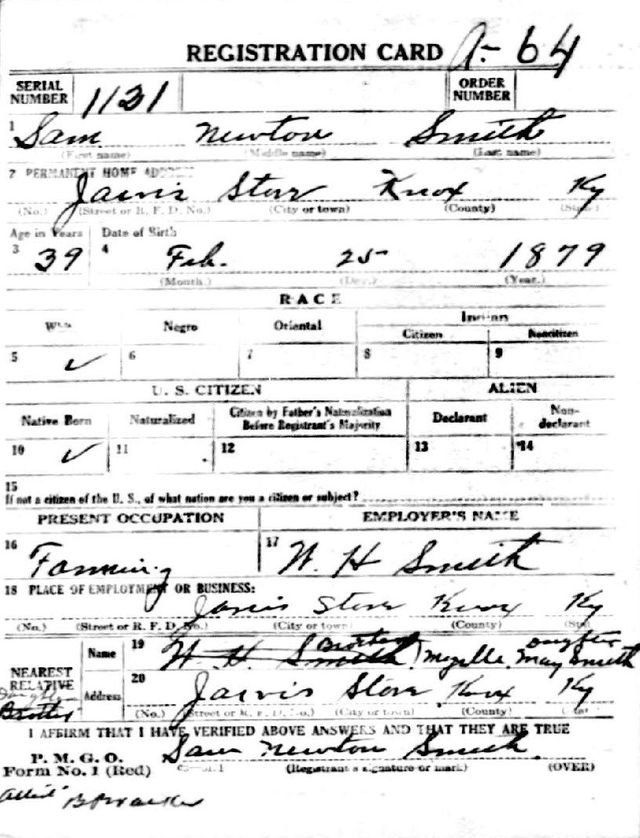 REGISTRATION CARD A-64
SERIAL NUMBER 1131 ORDER NUMBER
1 Sam Newton Smith
(First name) (Middle name) (Last name)
2 PERMANENT HOME ADDRESS
Jarvis Store Knox Ky
(No.) (Street or R. F. D. No.) (City or town) (County) (State)
Age in Years Date of Birth
3 39 4 Feb. 25 1879
(Month.) (Day.) (Year.)
RACE
White Negro Oriental Indian
Citizen Noncitizen
5 ✓ 6 7 8 9
U. S. CITIZEN ALIEN
Native Born Naturalized Citizen by Father's Naturalization Before Registrant's Majority Declarant Non-declarant
10 ✓ 11 12 13 14
15
If not a citizen of the U. S., of what nation are you a citizen or subject?
PRESENT OCCUPATION EMPLOYER'S NAME
16 Farming 17 W. H Smith
18 PLACE OF EMPLOYMENT OR BUSINESS:
Jarvis Store Knox Ky
(No.) (Street or R. F. D. No.) (City or town) (County) (State)
NEAREST RELATIVE Name 19 W. H. Smith May Smith Daughter
Brother Address 20 Jarvis Store Knox Ky
(No.) (Street or R. F. D. No.) (City or town) (County) (State)
I AFFIRM THAT I HAVE VERIFIED ABOVE ANSWERS AND THAT THEY ARE TRUE
P. M. G. O.
Form No. 1 (Red) Sam Newton Smith
(Registrant's signature or mark) (OVER)